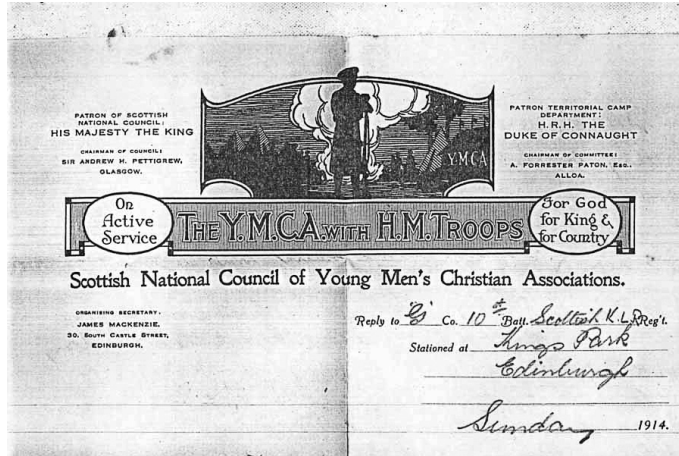 PATRON OF SCOTTISH
NATIONAL COUNCIL:
HIS MAJESTY THE KING
CHAIRMAN OF COUNCIL:
SIR ANDREW H. PETTIGREW,
GLASGOW.
Y.M.C.A
PATRON TERRITORIAL CAMP
DEPARTMENT:
H.R.H. THE
DUKE OF CONNAUGHT
CHAIRMAN OF COMMITTEE:
A. FORRESTER PATON, Esq.,
ALLOA.
On
Active
Service
THE Y.M.C.A. WITH H.M. TROOPS
For God
for King &
for Country
Scottish National Council of Young Men's Christian Associations.
ORGANISING SECRETARY:
JAMES MACKENZIE,
30, SOUTH CASTLE STREET,
EDINBURGH.
Reply to "G" Co. 10th Batt. Scottish K.L.R Reg't.
Stationed at Kings Park
Edinburgh
Sunday 1914.